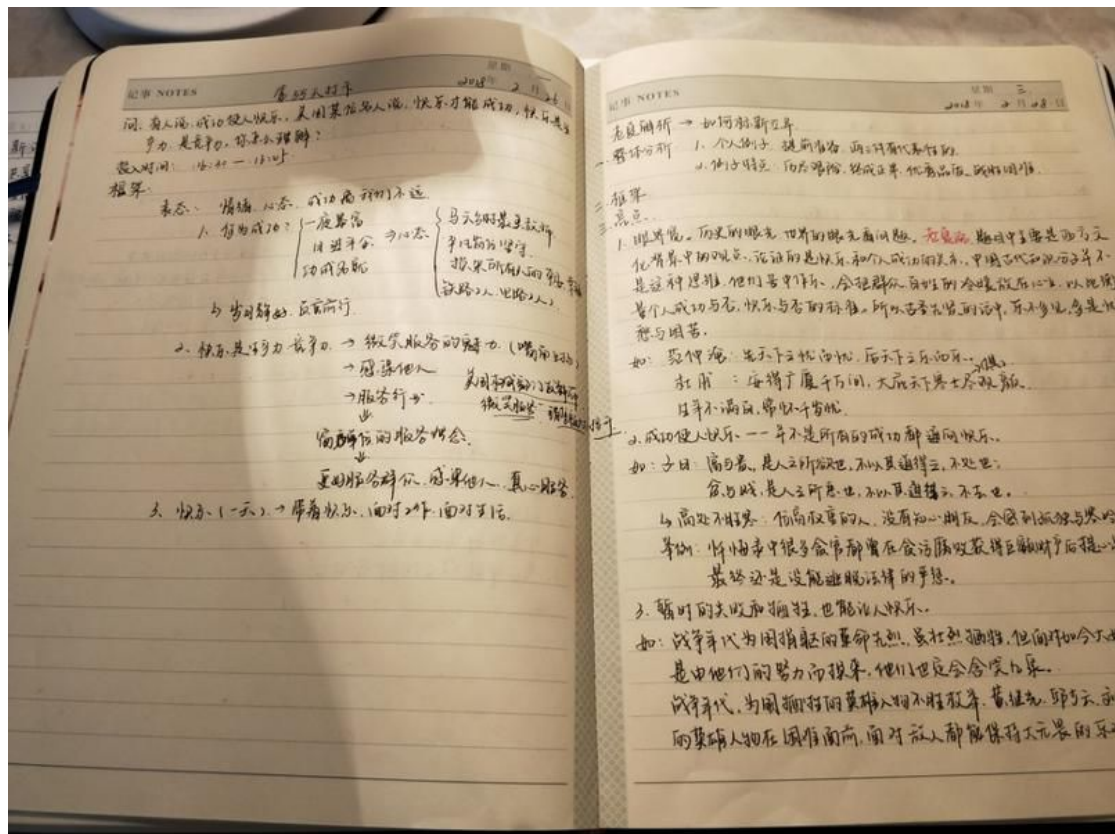 记事 NOTES
星期 一
2018年 2月 26日
第55天打卡
问:有人说,成功使人快乐,美国某作家人说,快乐才能成功,快乐是生
产力,是竞争力,你怎么理解?
录入时间:
框架:
表态:情绪、心态,成功离我们不远
1. 何为成功?
一夜暴富
日进斗金
功成名就
→心态
马云
铁路工人、电路工人
↳ 岁月静好,负重前行
2. 快乐是生产力、竞争力 → 微笑服务的魅力(嘴角上扬)
→ 感染他人
→ 服务行业
美国
微笑服务
窗口单位的服务理念
更好服务群众,感染他人,真心服务
3. 快乐(一天)→ 带着快乐,面对工作,面对生活
记事 NOTES
星期 三
2018年 2月 28日
老良解析 → 如何标新立异
一、整体分析 1. 个人例子,提前准备,两三对有代表性的
2. 例子特点:历尽艰险,终成正果,优秀品质,战胜困难
二、框架
三、亮点
1. 眼界宽。历史的眼光,世界的眼光看问题。题目中主要是西方文
化背景中的观点,论证的是快乐和个人成功的关系,中国古代知识分子并不
是这种思维,他们苦中作乐,会把群众、百姓的冷暖放在心上,以此衡
量个人成功与否,快乐与否的标准。所以古圣先贤的话中,乐不多见,多是忧
愁与困苦。
如:范仲淹:先天下之忧而忧,后天下之乐而乐。
杜甫:安得广厦千万间,大庇天下寒士尽欢颜。
生年不满百,常怀千岁忧
2. 成功使人快乐——并不是所有的成功都通向快乐。
如:子曰:富与贵,是人之所欲也,不以其道得之,不处也;
贫与贱,是人之所恶也,不以其道得之,不去也。
↳ 高处不胜寒:位高权重的人,没有知心朋友,会感到孤独与寒冷
举例:忏悔录中很多贪官都曾在贪污腐败获得巨额财产后提心
最终还是没能逃脱法律的严惩。
3. 暂时的失败和牺牲,也能让人快乐。
如:战争年代为国捐躯的革命先烈,虽壮烈牺牲,但面对如今大
是由他们的努力而换来,他们也定会含笑九泉。
战争年代,为国牺牲的英雄人物不胜枚举,黄继光、邱少云、
的英雄人物在困难面前,面对敌人都能保持大无畏的乐